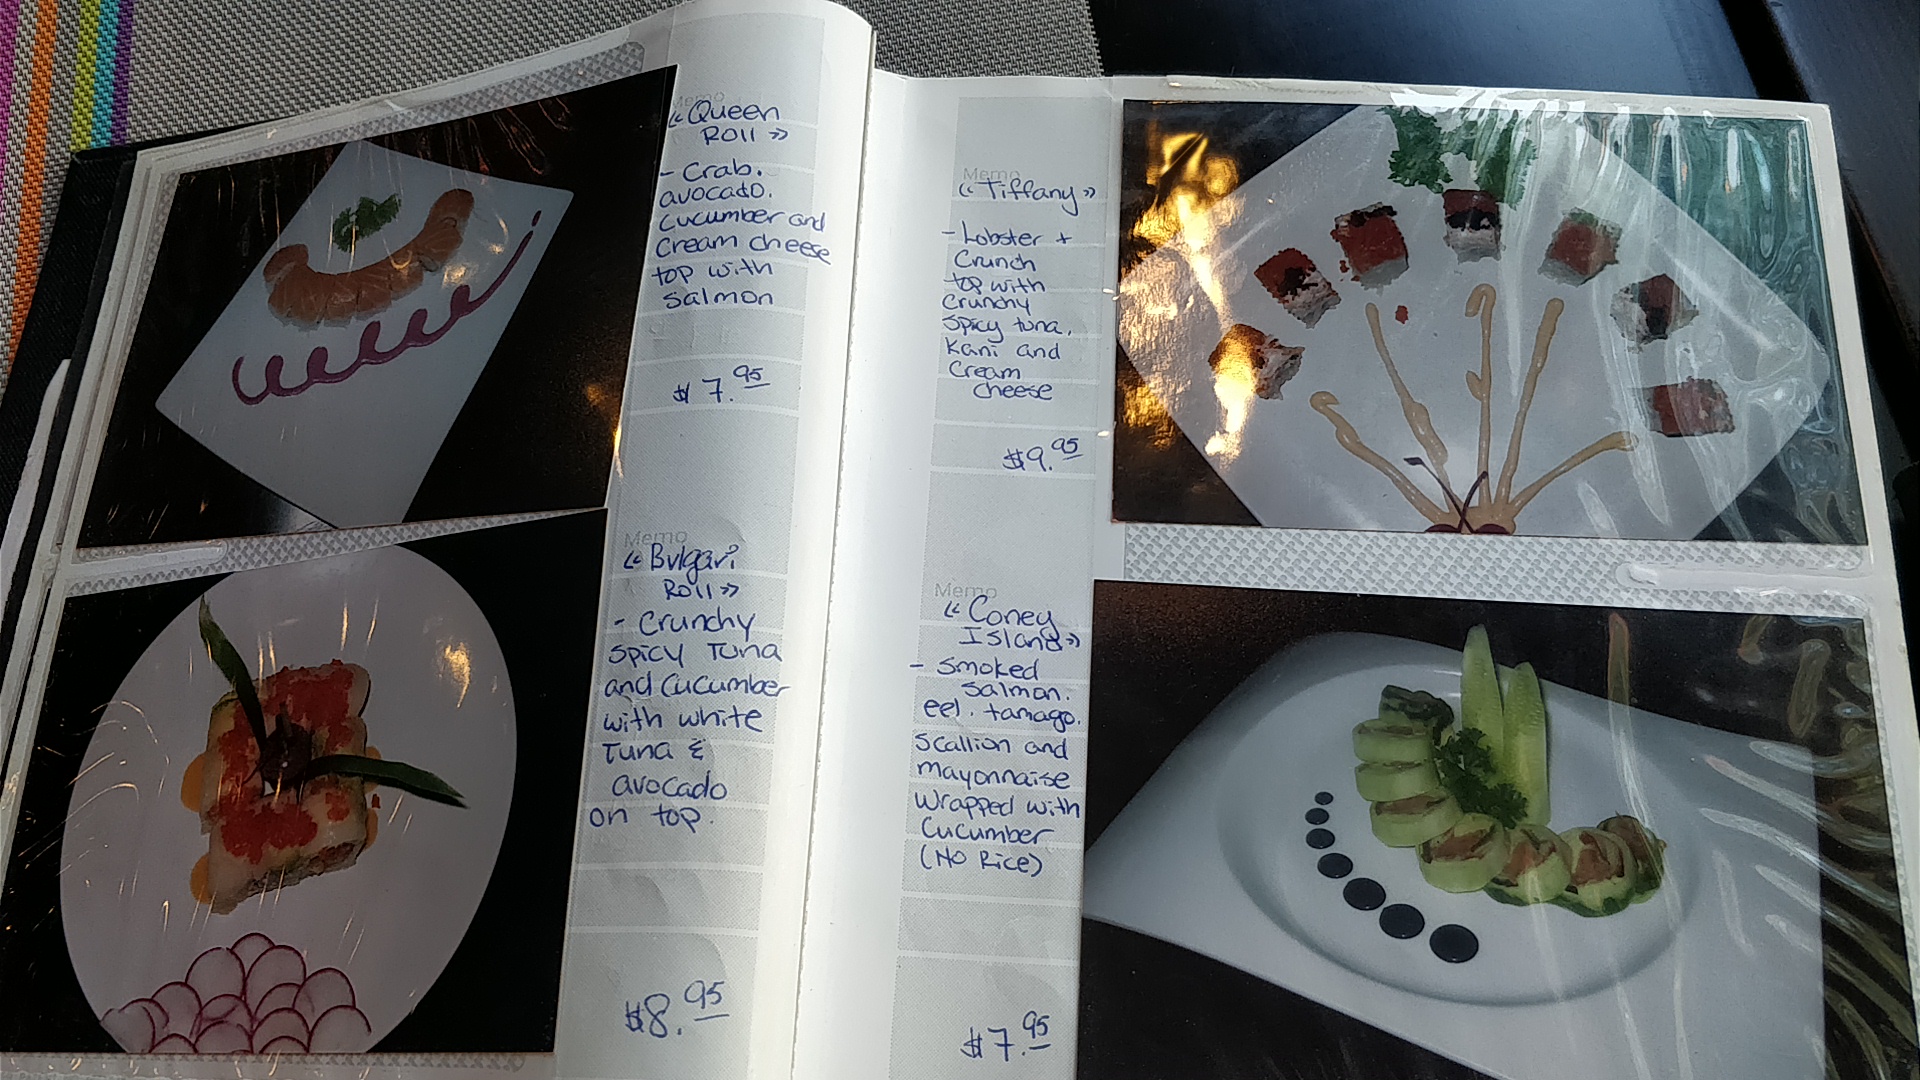 Memo
"Queen
Roll"
- Crab.
avocado.
cucumber and
cream cheese
top with
salmon
$7.95
Memo
"Bvlgari
Roll"
- Crunchy
spicy Tuna
and cucumber
with white
Tuna &
avocado
on top.
$8.95
Memo
"Tiffany"
- Lobster +
Crunch
top with
crunchy
spicy tuna,
Kani and
Cream
cheese
$9.95
Memo
"Coney
Island"
- Smoked
Salmon.
eel. tamago.
Scallion and
mayonnaise
wrapped with
cucumber
(No Rice)
$7.95